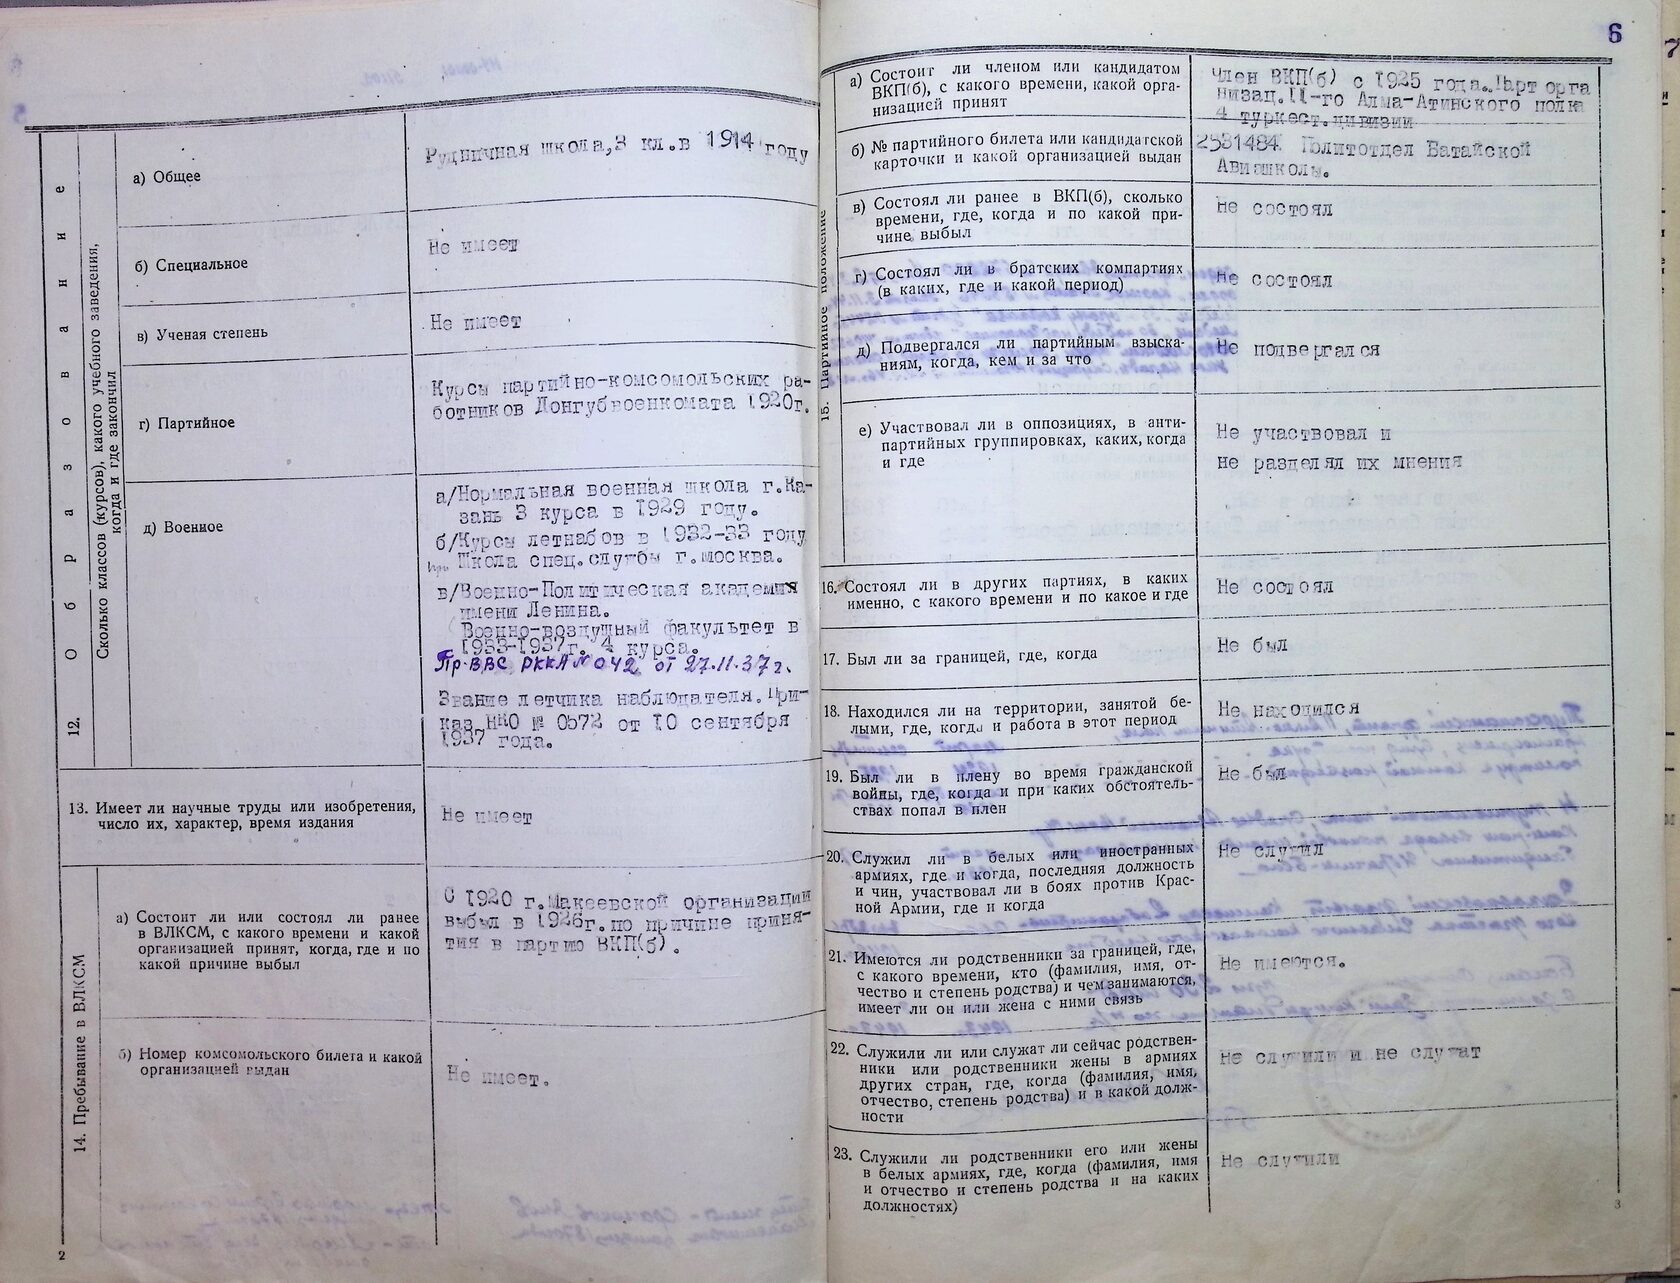 12. Образование
Сколько классов (курсов), какого учебного заведения,
когда и где закончил
а) Общее
Рудничная школа, 3 кл.в 1914 году
б) Специальное
Не имеет
в) Ученая степень
Не имеет
г) Партийное
Курсы партийно-комсомольских ра-
ботников Донгубвоенкомата 1920г.
д) Военное
а/Нормальная военная школа г.Ка-
зань 3 курса в 1929 году.
б/Курсы летнабов в 1932-33 году
при Школа спец.службы г.Москва.
в/Военно-Политическая академия
имени Ленина.
Военно-воздушный факультет в
1933-1937г. 4 курса.
Пр. ВВС РККА № 042 от 27.11.37 г.
Звание летчика наблюдателя. При-
каз НКО № 0572 от 10 сентября
1937 года.
13. Имеет ли научные труды или изобретения,
число их, характер, время издания
Не имеет
14. Пребывание в ВЛКСМ
а) Состоит ли или состоял ли ранее
в ВЛКСМ, с какого времени и какой
организацией принят, когда, где и по
какой причине выбыл
С 1920 г.Макеевской организации
выбыл в 1926г.по причине приня-
тия в партию ВКП(б).
б) Номер комсомольского билета и какой
организацией выдан
Не имеет.
2
6
7
15. Партийное положение
а) Состоит ли членом или кандидатом
ВКП(б), с какого времени, какой орга-
низацией принят
Член ВКП(б) с 1925 года. Парт орга
низац. II-го Алма-Атинского полка
4 туркест.дивизии
б) № партийного билета или кандидатской
карточки и какой организацией выдан
2531484 Политотдел Батайской
Авиашколы.
в) Состоял ли ранее в ВКП(б), сколько
времени, где, когда и по какой при-
чине выбыл
Не состоял
г) Состоял ли в братских компартиях
(в каких, где и какой период)
Не состоял
д) Подвергался ли партийным взыска-
ниям, когда, кем и за что
Не подвергался
е) Участвовал ли в оппозициях, в анти-
партийных группировках, каких, когда
и где
Не участвовал и
не разделял их мнения
16. Состоял ли в других партиях, в каких
именно, с какого времени и по какое и где
Не состоял
17. Был ли за границей, где, когда
Не был
18. Находился ли на территории, занятой бе-
лыми, где, когда и работа в этот период
Не находился
19. Был ли в плену во время гражданской
войны, где, когда и при каких обстоятель-
ствах попал в плен
Не был
20. Служил ли в белых или иностранных
армиях, где и когда, последняя должность
и чин, участвовал ли в боях против Крас-
ной Армии, где и когда
Не служил
21. Имеются ли родственники за границей, где,
с какого времени, кто (фамилия, имя, от-
чество и степень родства) и чем занимаются,
имеет ли он или жена с ними связь
Не имеются.
22. Служили ли или служат ли сейчас родствен-
ники или родственники жены в армиях
других стран, где, когда (фамилия, имя,
отчество, степень родства) и в какой долж-
ности
Не служили и не служат
23. Служили ли родственники его или жены
в белых армиях, где, когда (фамилия, имя
и отчество и степень родства и на каких
должностях)
Не служили
3